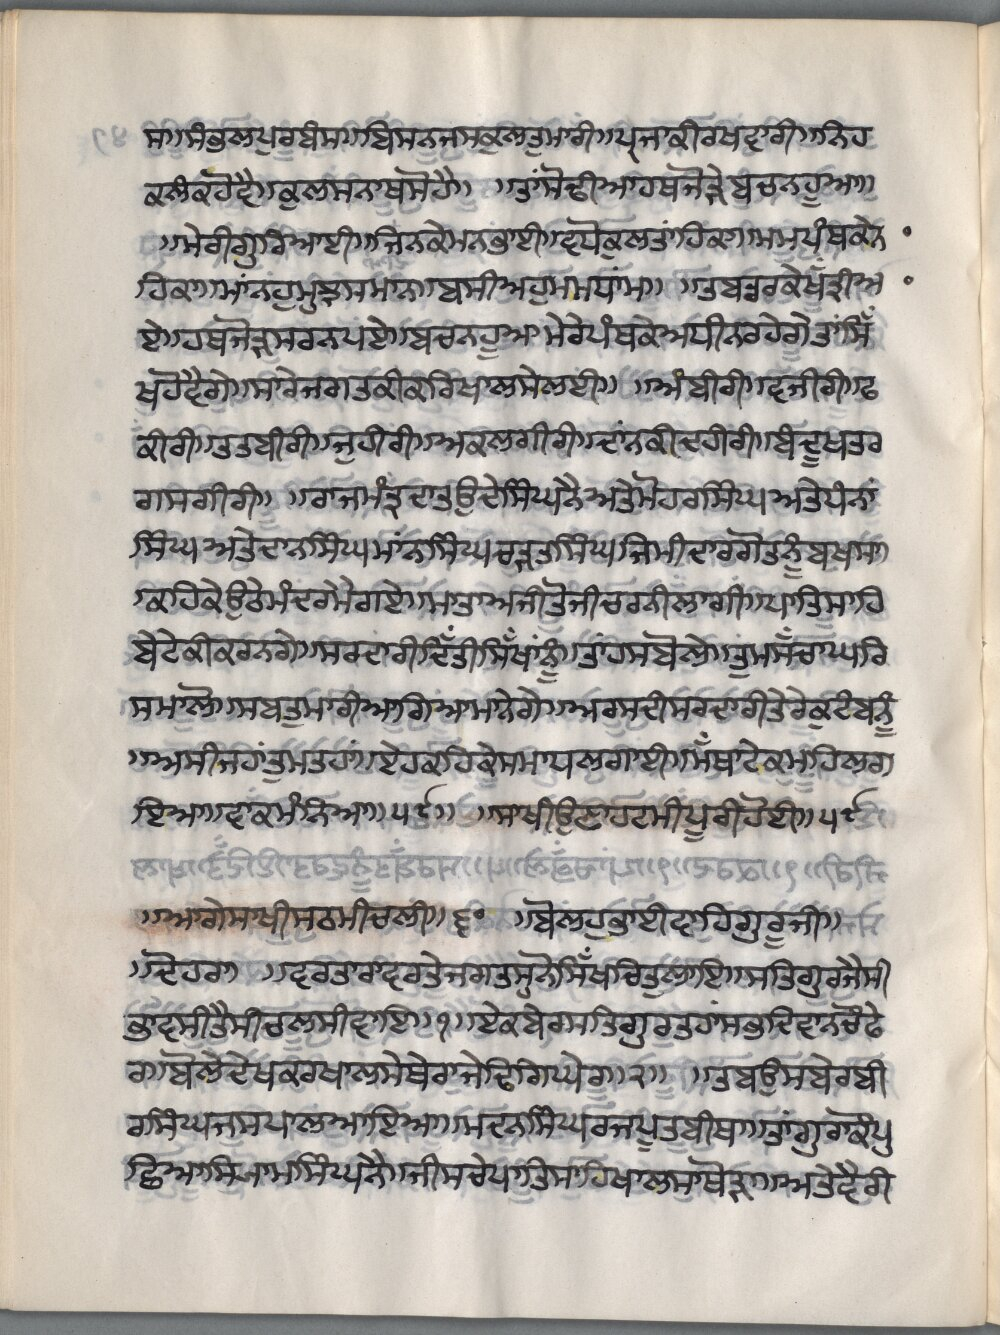 ਸਾ॥ਸੰਕੁਲਪੁਰਬੰਸਾ॥ਬਿਸਨੁਜਸਕੁਲਤੁਮਾਰੀ॥ਪ੍ਰਜਾਕੀਰਖਵਾਰੀ॥ਨਿਹ
ਕਲੰਕਹੋਵੈ॥ਕੁਲਸਨਾਬਸੋਹੈ॥ ॥ਤਾਂਸੋਢੀਆਹਥਜੋੜੇਬਚਨਹੁਆ॥
॥ਮੇਰੀਗੁਰਿਆਈ॥ਜਿਨਕੇਮਨਭਾਈ॥ਵਧੋਕੁਲਤਾਂਹਿਕਾ॥ਮਮਪੰਥਕੇਨ
ਹਿਕਾ॥ਮਾਂਨਹੁਮੁਝਸਮਾਂਨ॥ਬਸੀਅਹੁਮਮਧਾਂਮ॥ ॥ਤੁਬਤੁਰਕੇਖੱਤ੍ਰੀਅ
ਏ॥ਹਥਜੋੜਸਰਨਪਏ॥ਬਚਨਹੁਆਮੇਰੇਪੰਥਕੇਅਧੀਨਰਹੇਗੇਤਾਂਸਿੱ
ਖਹੋਵੈਗੇ॥ਸਾਰੇਜਗਤਕੀਕਰਿਖਾਲਸੇਲਈ॥ ॥ਅੰਬੀਰੀ॥ਵਜੀਰੀ॥ਫ
ਕੀਰੀ॥ਤਤਬੀਰੀ॥ਜੁਹੀਰੀ॥ਅਕਲਗੀਰੀ॥ਦਾਂਨਕੀਦਹੀਰੀ॥ਬੰਦੂਖਤਰ
ਗਸਗੀਰੀ॥ ॥ਰਾਜਮੰਤ੍ਰਦਾਤਉਦੇਸਿੰਘਨੈਅਤੇਮੋਹਰਸਿੰਘਅਤੇਧੰਨਾਂ
ਸਿੰਘਅਤੇਦਾਨਸਿੰਘਮਾਂਨਸਿੰਘਚੜ੍ਹਤਸਿੰਘਜਿਮੀਦਾਰਗੋਤਨੂੰਬਖਸਾ
॥ਕਹਿਕੇਉਠੇਮੰਦਰਮੈਗਏ॥ਮਾਤਾਅਜੀਤੋਜੀਚਰਨੀਲਾਗੀ॥ਪਾਤਿਸਾਹਿ
ਬੇਟੇਕੀਕਰਨਗੇ॥ਸਰਦਾਰੀਦਿੱਤੀਸਿੱਖਾਂਨੂੰ॥ਤਾਂਹਸਬੋਲੇ॥ਤੁਮਸੱਚਾਘਰਿ
ਸਮਾਲੋ॥ਸਬਤੁਮਾਰੀਆਗਿਆਮਨੇਗੇ॥ਅਰਸਦੀਸਰਦਾਰੀਤੇਰੇਕੁਟੰਬਨੂੰ
॥ਅਸੀਜਹਾਂਤੁਮਤਹਾਂ॥ਏਹਕਹਿਕੇਸਮਾਧਲਗਾਈ॥ਮੱਥਾਟੇਕਮਹਿਲਗ
ਇਆ॥ਵਾਕਮੰਨਿਆ॥੫੯॥ ॥ਸਾਖੀਉਣਾਹਟਮੀਪੂਰੀਹੋਈ॥੫੯
॥ਆਗੇਸਾਖੀਸਠਮੀਚਲੀ॥੬੦ ॥ਬੋਲਹੁਭਾਈਵਾਹਿਗੁਰੂਜੀ॥
॥ਦੋਹਰਾ ॥ਵਰਤਾਰਾਵਰਤੇਜਗਤਸੁਨੋਸਿੱਖਚਿਤੁਲਾਇ॥ਸਤਿਗੁਰਜੈਸੀ
ਭਾਵਸੀਤੈਸੀਚਲਸੀਵਾਇ॥੧॥ਏਕਬੇਰਸਤਿਗੁਰਤਹਾਂਸਭਦਿਵਾਨਚੌਫੇ
ਰਾ॥ਬੋਲੇਦੇਖਕਰਖਾਲਸੇਬੇਰਾਜੇਢਿਗਿਘੇਰਾ॥੨॥ ॥ਤਬਉਸਬੇਰਬੀ
ਰਸਿੰਘਜਸਪਾਲਆਇਆ॥ਮਦਨਸਿੰਘਰਜਪੂਤਬੀਥਾ॥ਤਾਂਗੁਰਾਂਕੋਪੁ
ਛਿਆਸਿਆਮਸਿੰਘਨੈ॥ਜੀਸਚੇਪਾਤਿਸਾਹਿਖਾਲਸਾਥੋੜਾ॥ਅਤੇਵੈਰੀ